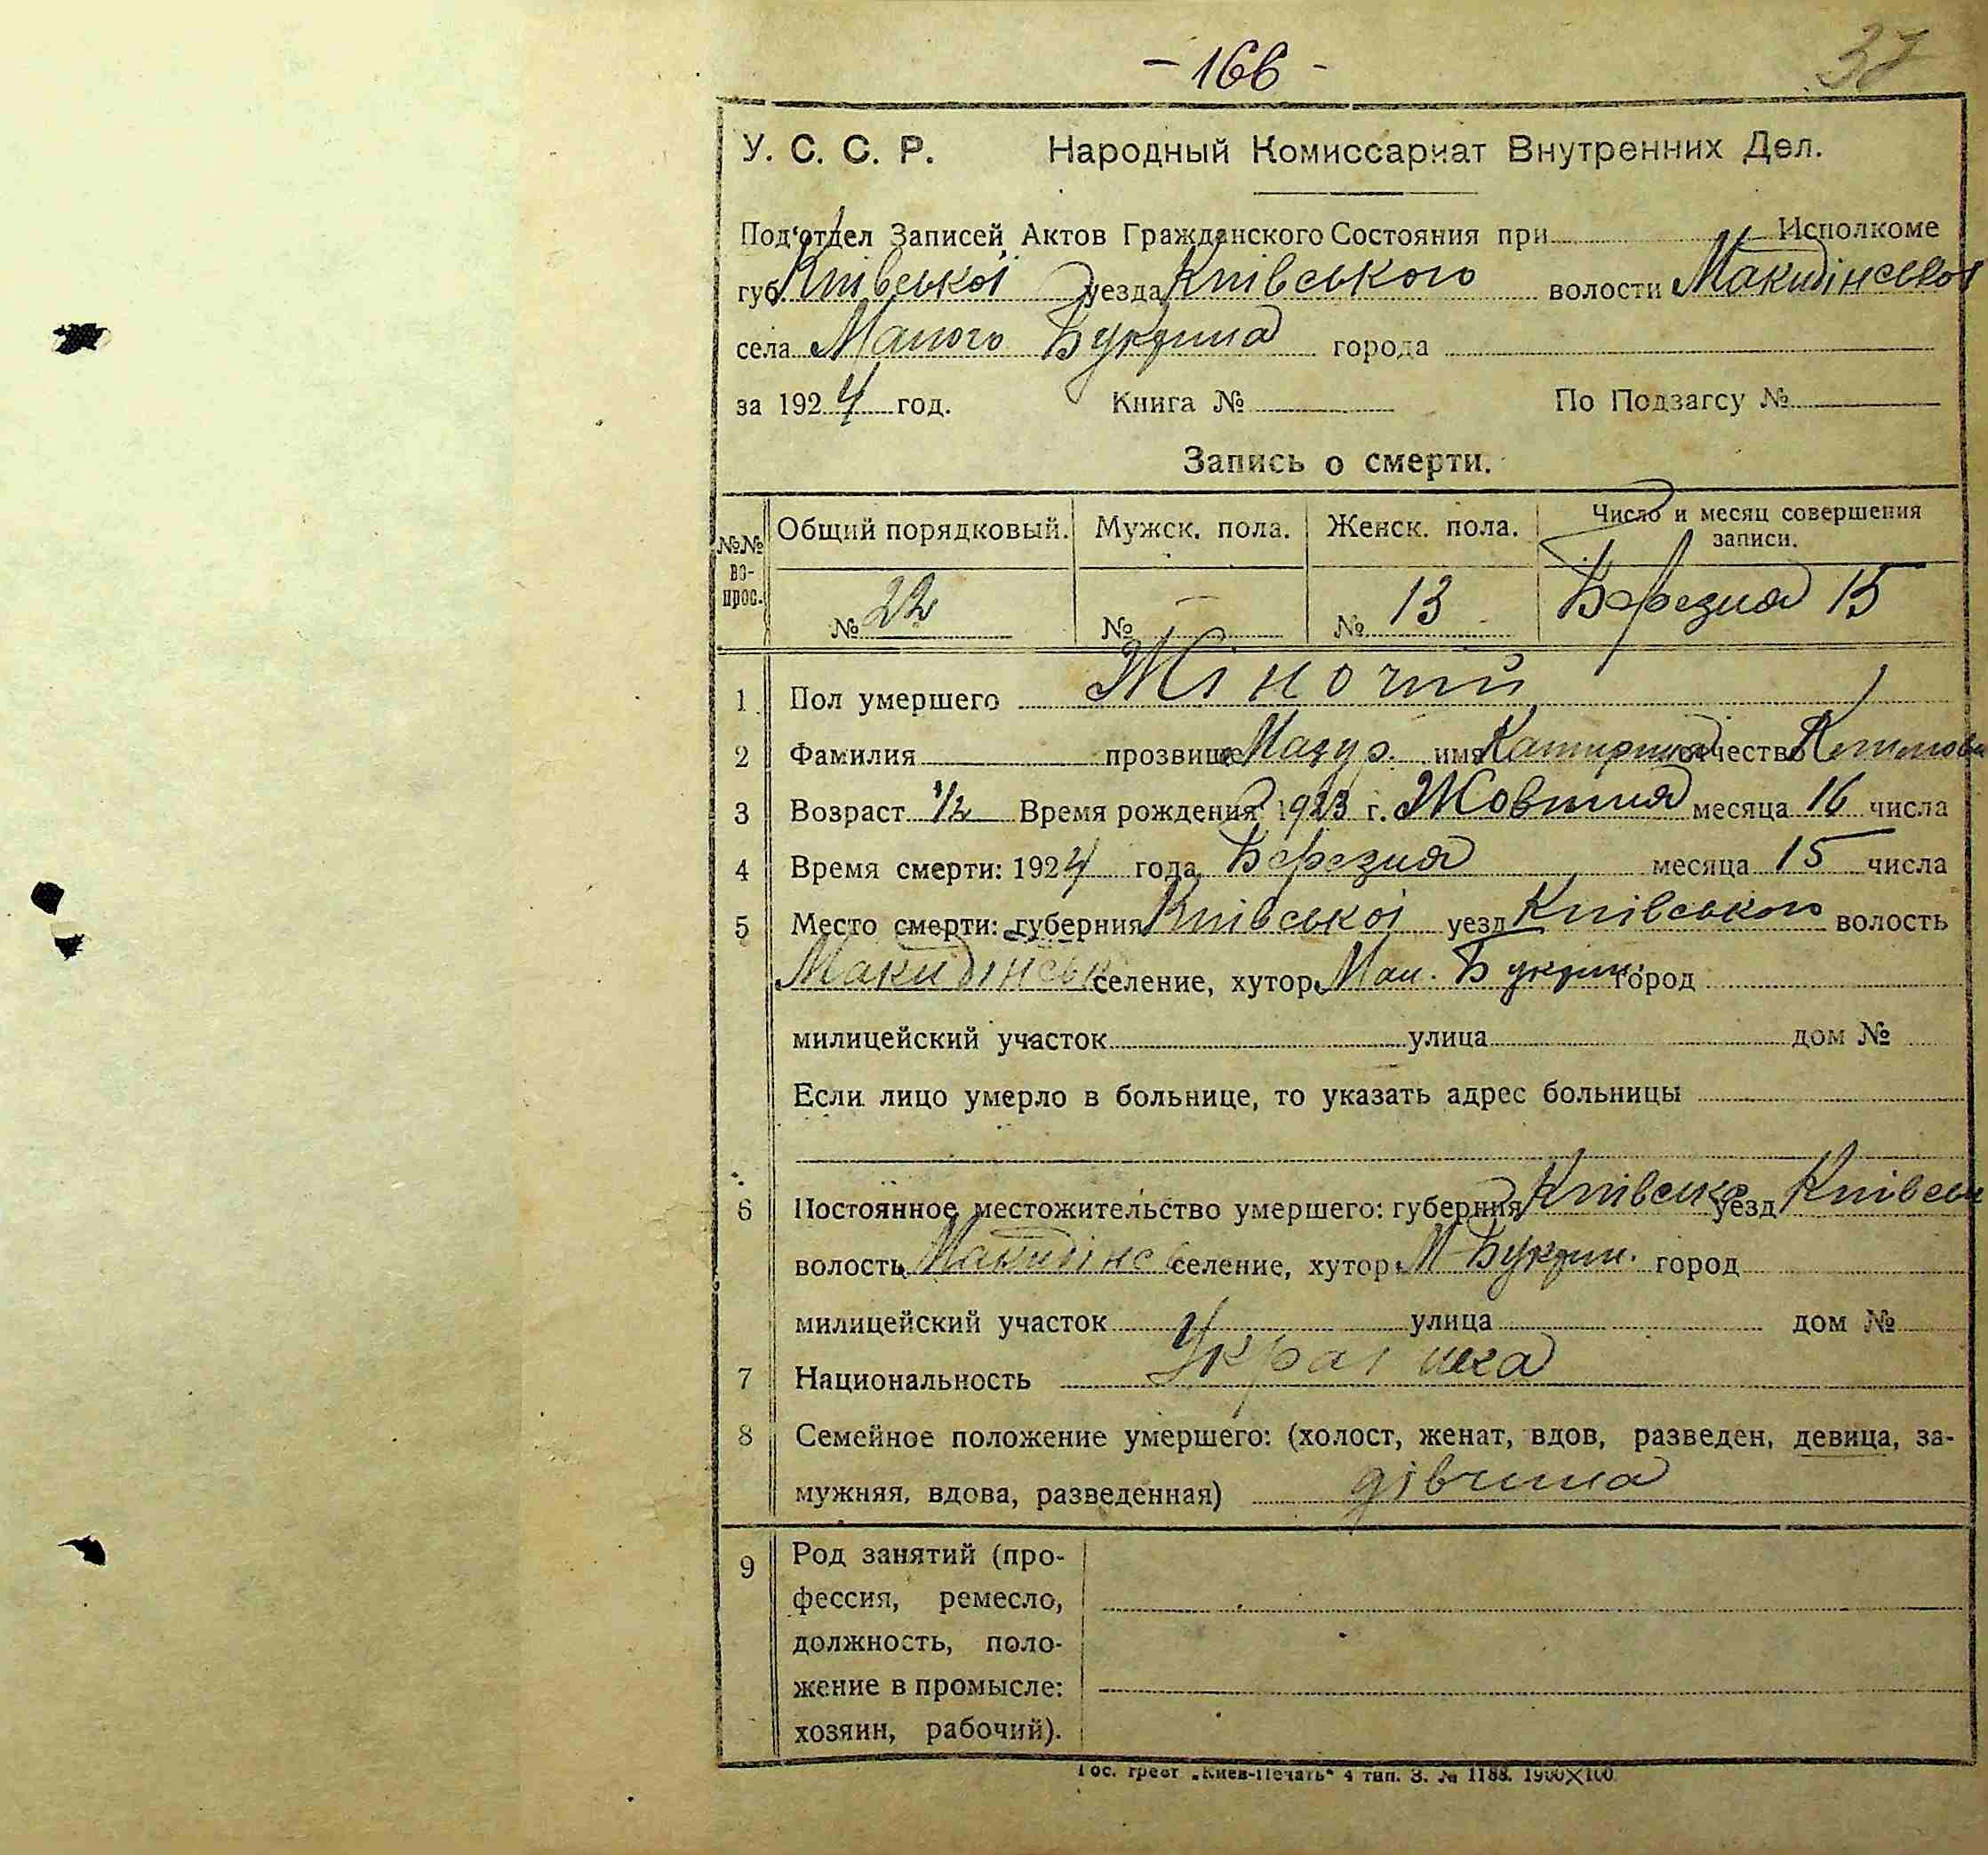 - 166 -
37
У. С. С. Р. Народный Комиссариат Внутренних Дел.
Под'отдел Записей Актов Гражданского Состояния при Исполкоме
губ. Київської уезда Київського волости Макидінської
села Малого Букрина города
за 1924 год. Книга № По Подзагсу №
Запись о смерти.
№№ вопрос. Общий порядковый. Мужск. пола. Женск. пола. Число и месяц совершения записи.
№ 22 № — № 13 Березня 15
1 Пол умершего Жіночий
2 Фамилия прозвище Мазур имя Катирина отчество
3 Возраст 1/2 Время рождения 1923 г. Жовтня месяца 16 числа
4 Время смерти: 1924 года Березня месяца 15 числа
5 Место смерти: губерния Київської уезд Київського волость
Макидінськ селение, хутор Мал. Букрин город
милицейский участок улица дом №
Если лицо умерло в больнице, то указать адрес больницы
6 Постоянное местожительство умершего: губерния Київська уезд Київськ
волость Макидінс селение, хутор М Букрин. город
милицейский участок улица дом №
7 Национальность Українка
8 Семейное положение умершего: (холост, женат, вдов, разведен, девица, за-
мужняя, вдова, разведенная) дівчина
9 Род занятий (про-
фессия, ремесло,
должность, поло-
жение в промысле:
хозяин, рабочий).
Гос. трест „Киев-Печать“ 4 тип. З. № 1188. 1900×100